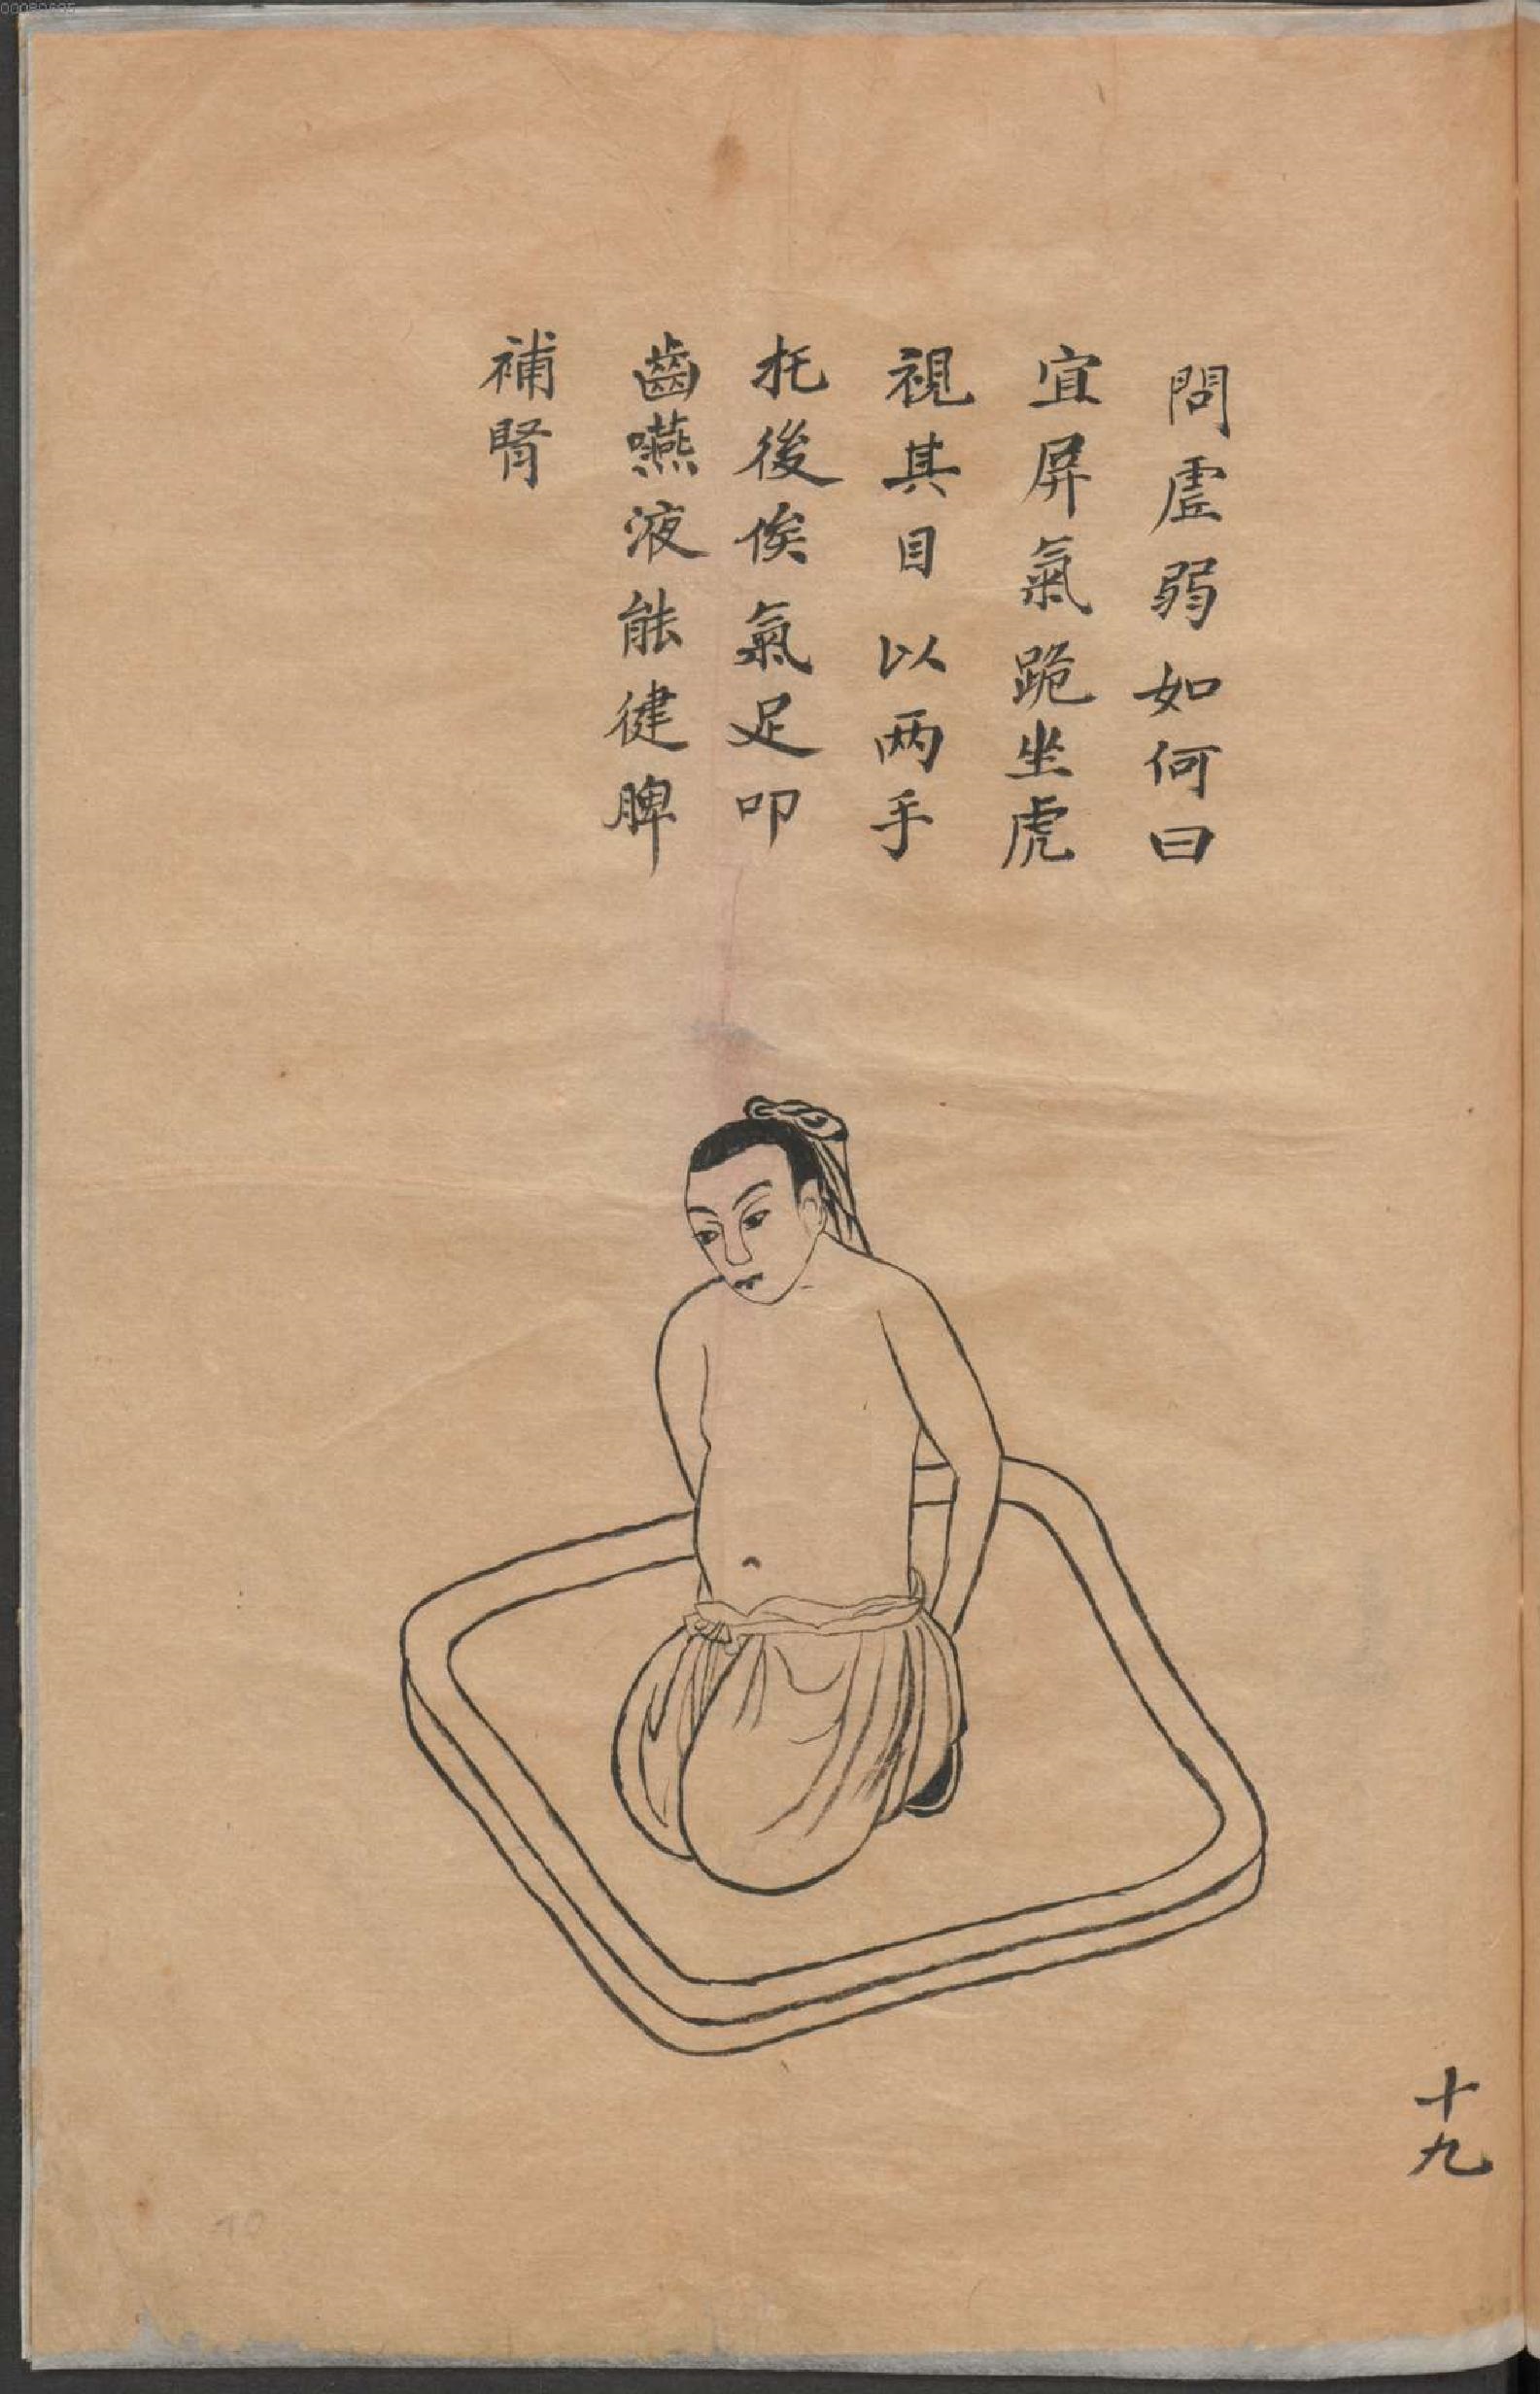 問虛弱如何曰
宜屏氣跪坐虎
視其目以两手
托後俟氣足叩
齒嚥液能健脾
補腎
十九
10
00080695